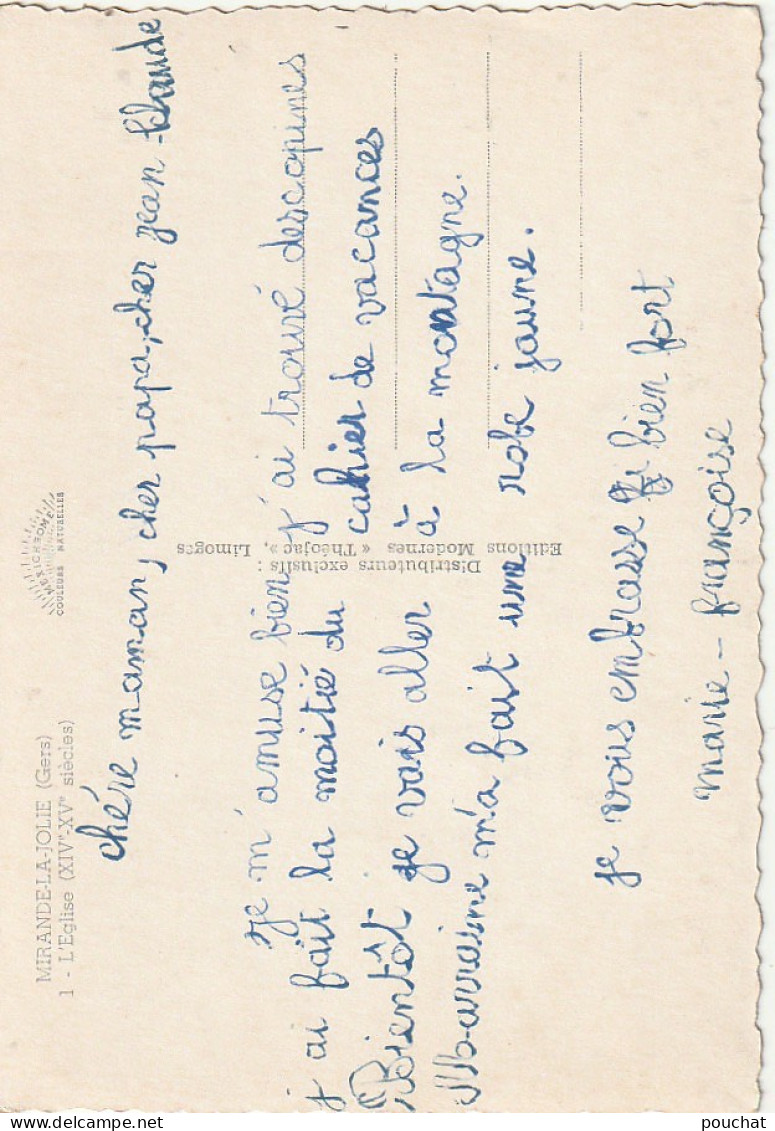 MIRANDE-LA-JOLIE (Gers)
1 - L'Eglise (XIVe-XVe siècles)
MEXICHROME
COULEURS NATURELLES
chére maman, cher papa, cher jean-klaude
je m'amuse bien j'ai trouvé des copines
j'ai fait la moitié du cahier de vacances
Bientôt je vais aller à la montagne.
Marraine m'a fait une robe jaune.
je vous embrasse bien fort
marie-françoise
Distributeurs exclusifs :
Editions Modernes « Théojac », Limoges
pouchat